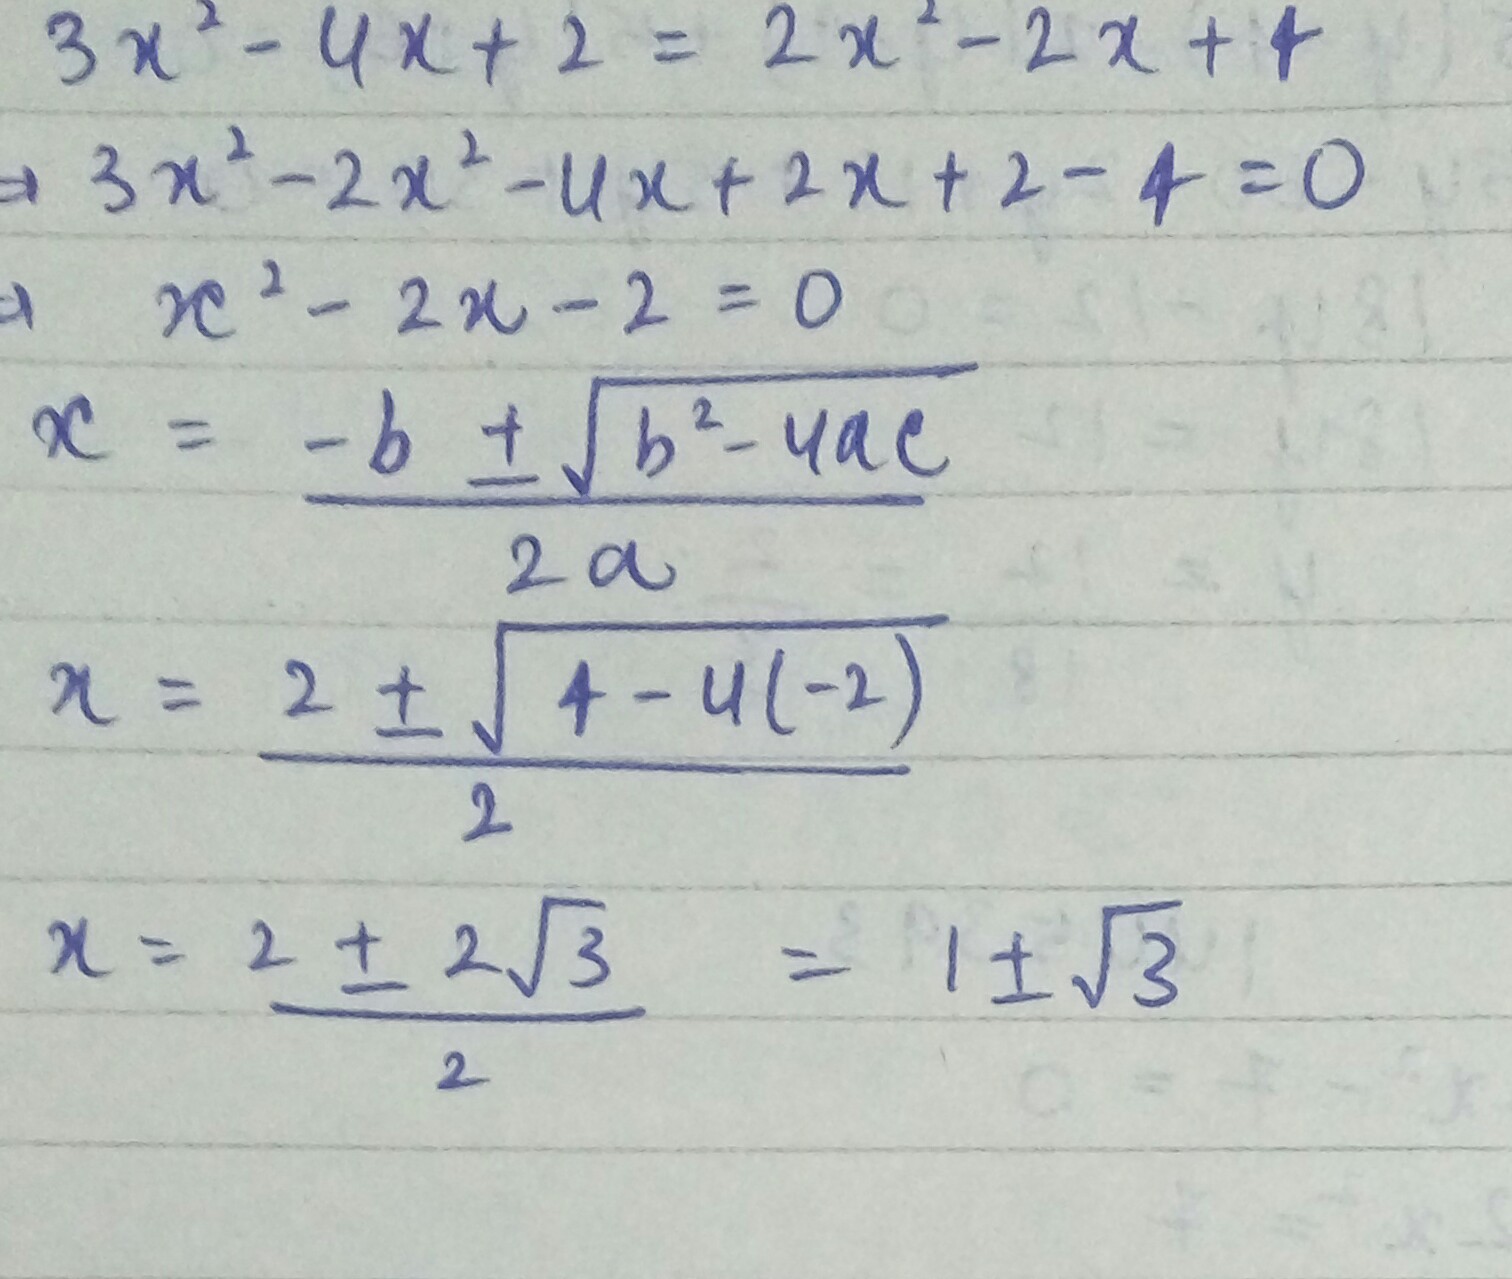 3x² - 4x + 2 = 2x² - 2x + 4
⇒ 3x² - 2x² - 4x + 2x + 2 - 4 = 0
⇒ x² - 2x - 2 = 0
x = -b ± √(b² - 4ac)
2a
x = 2 ± √(4 - 4(-2))
2
x = 2 ± 2√3 = 1 ± √3
2